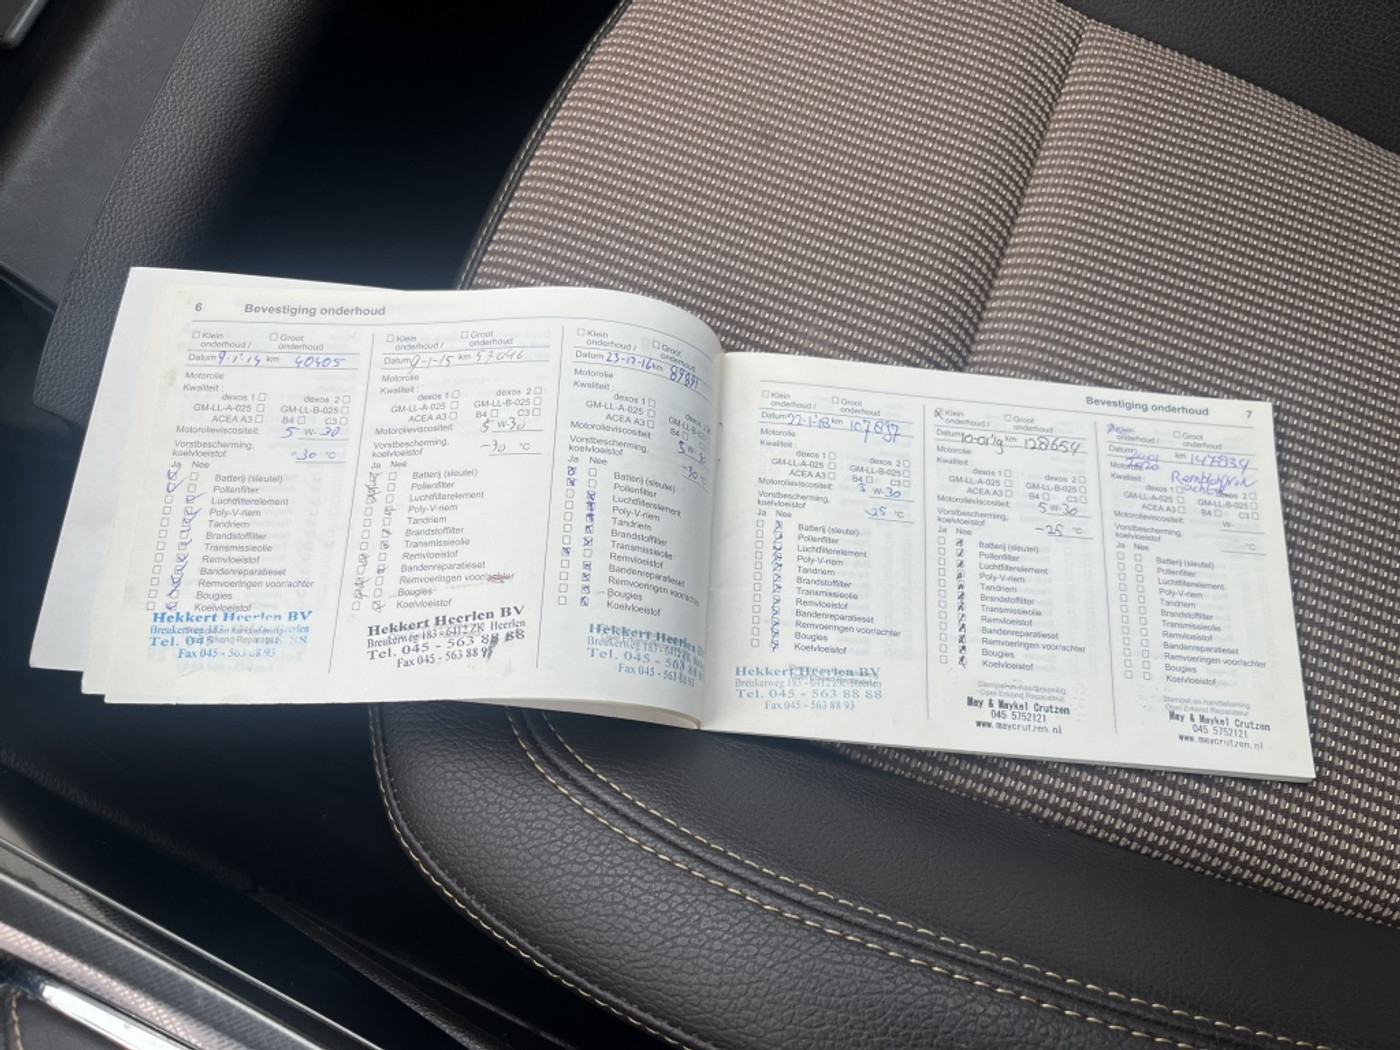 6 Bevestiging onderhoud
Klein onderhoud / Groot onderhoud
Datum 9-1-14 km 40405
Motorolie
Kwaliteit :
dexos 1 dexos 2
GM-LL-A-025 GM-LL-B-025
ACEA A3 B4 C3
Motorolieviscositeit: 5 W- 30
Vorstbescherming,
koelvloeistof -30 °C
Ja Nee
Batterij (sleutel)
Pollenfilter
Luchtfilterelement
Poly-V-riem
Tandriem
Brandstoffilter
Transmissieolie
Remvloeistof
Bandenreparatieset
Remvoeringen voor/achter
Bougies
Koelvloeistof
Hekkert Heerlen BV
Breukerweg 183 - 6412 ZK Heerlen
Tel. 045 - 563 88 88
Fax 045 - 563 88 93
Klein onderhoud / Groot onderhoud
Datum 9-1-15 km
Motorolie
Kwaliteit :
dexos 1 dexos 2
GM-LL-A-025 GM-LL-B-025
ACEA A3 B4 C3
Motorolieviscositeit: 5 W-30
Vorstbescherming,
koelvloeistof -30 °C
Ja Nee
Batterij (sleutel)
Pollenfilter
Luchtfilterelement
Poly-V-riem
Tandriem
Brandstoffilter
Transmissieolie
Remvloeistof
Bandenreparatieset
Remvoeringen voor/achter
Bougies
Koelvloeistof
Hekkert Heerlen BV
Breukerweg 183 - 6412 ZK Heerlen
Tel. 045 - 563 88 88
Fax 045 - 563 88 93
Klein onderhoud / Groot onderhoud
Datum 23-12-16 km 89891
Motorolie
Kwaliteit :
dexos 1
GM-LL-A-025
ACEA A3 B4
Motorolieviscositeit: 5 W-30
Vorstbescherming,
koelvloeistof -30 °C
Ja Nee
Batterij (sleutel)
Pollenfilter
Luchtfilterelement
Poly-V-riem
Tandriem
Brandstoffilter
Transmissieolie
Remvloeistof
Bandenreparatieset
Remvoeringen voor/achter
Bougies
Koelvloeistof
Hekkert Heerlen
Breukerweg 183 - 6412 ZK
Tel. 045 - 563 88
Fax 045 - 563 88 93
Bevestiging onderhoud 7
Klein onderhoud / Groot onderhoud
Datum 22-1-18 km 107897
Motorolie
Kwaliteit :
dexos 1 dexos 2
GM-LL-A-025 GM-LL-B-025
ACEA A3 B4 C3
Motorolieviscositeit: 5 W-30
Vorstbescherming,
koelvloeistof -25 °C
Ja Nee
Batterij (sleutel)
Pollenfilter
Luchtfilterelement
Poly-V-riem
Tandriem
Brandstoffilter
Transmissieolie
Remvloeistof
Bandenreparatieset
Remvoeringen voor/achter
Bougies
Koelvloeistof
Hekkert Heerlen BV
Breukerweg 183 - 6412 ZK Heerlen
Tel. 045 - 563 88 88
Fax 045 - 563 88 93
Klein onderhoud / Groot onderhoud
Datum 10-01-19 km 128654
Motorolie
Kwaliteit :
dexos 1 dexos 2
GM-LL-A-025 GM-LL-B-025
ACEA A3 B4 C3
Motorolieviscositeit: 5 W-30
Vorstbescherming,
koelvloeistof -25 °C
Ja Nee
Batterij (sleutel)
Pollenfilter
Luchtfilterelement
Poly-V-riem
Tandriem
Brandstoffilter
Transmissieolie
Remvloeistof
Bandenreparatieset
Remvoeringen voor/achter
Bougies
Koelvloeistof
Stempel en handtekening
Opel Erkend Reparateur
May & Maykel Crutzen
045 5752121
www.maycrutzen.nl
Klein onderhoud / Groot onderhoud
Datum km 147834
Kwaliteit :
dexos 1 dexos 2
GM-LL-A-025 GM-LL-B-025
ACEA A3 B4 C3
Motorolieviscositeit: W-
Vorstbescherming,
koelvloeistof °C
Ja Nee
Batterij (sleutel)
Pollenfilter
Luchtfilterelement
Poly-V-riem
Tandriem
Brandstoffilter
Transmissieolie
Remvloeistof
Bandenreparatieset
Remvoeringen voor/achter
Bougies
Koelvloeistof
Stempel en handtekening
Opel Erkend Reparateur
May & Maykel Crutzen
045 5752121
www.maycrutzen.nl